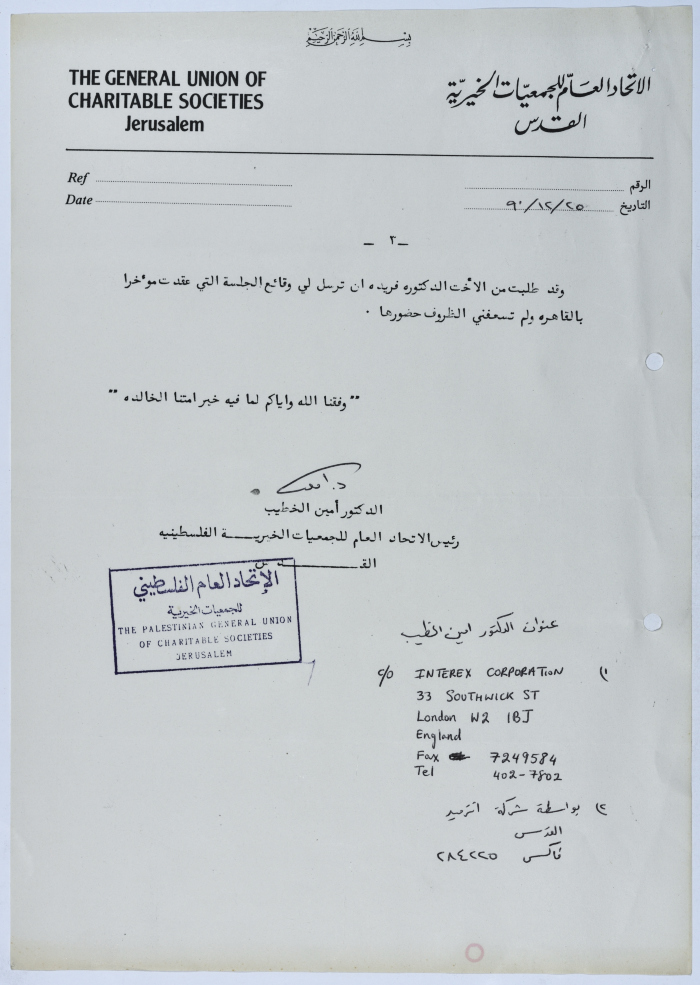 بسم الله الرحمن الرحيم
THE GENERAL UNION OF
CHARITABLE SOCIETIES
Jerusalem
الاتحاد العام للجمعيات الخيرية
القدس
Ref
Date
الرقم
التاريخ ٩٠/١٢/٢٥
ـ ٣ ـ
وقد طلبت من الأخت الدكتوره فريده ان ترسل لي وقائع الجلسة التي عقدت مؤخرا
بالقاهره ولم تسعفني الظروف حضورها .
" وفقنا الله واياكم لما فيه خير امتنا الخالده "
د. امين
الدكتور أمين الخطيب
رئيس الاتحاد العام للجمعيات الخيريـــة الفلسطينيه
القـــــدس
الإتحاد العام الفلسطيني
للجمعيات الخيرية
THE PALESTINIAN GENERAL UNION
OF CHARITABLE SOCIETIES
JERUSALEM
عنوان الدكتور امين الخطيب
١) c/o INTEREX CORPORATION
33 SOUTHWICK ST
London W2 1BJ
England
Fax 7249584
Tel 402-7802
٢) بواسطة شركة انترميد
القدس
فاكس ٢٨٤٢٢٥